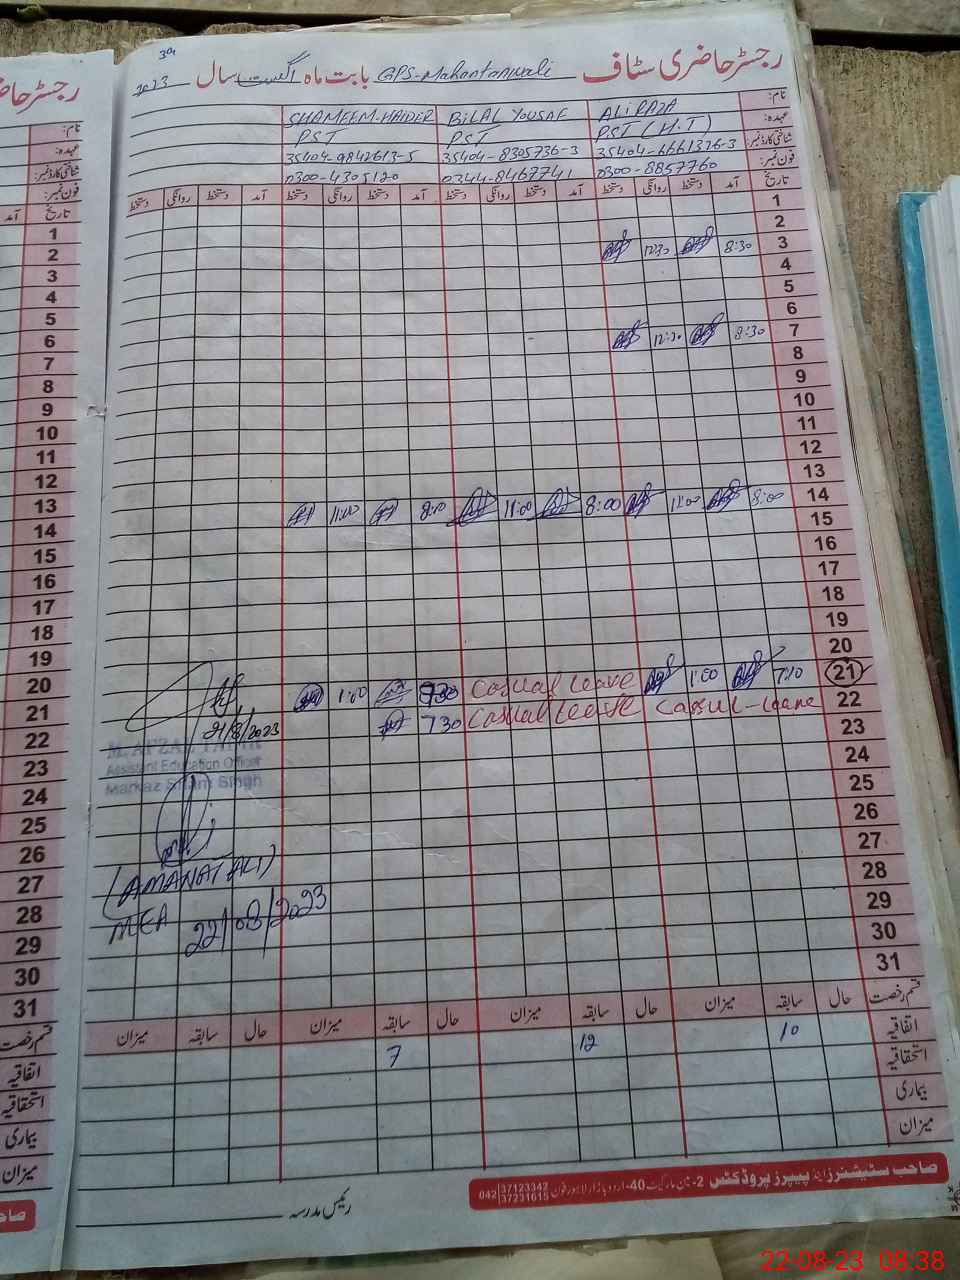 رجسٹر حاضری سٹاف GPS-Mahantanwali بابت ماہ اگست سال 2023
نام: ALI RAZA BILAL YOUSAF SHAMEEM-HAIDER
عہدہ: PST (H.T) PST PST
شناختی کارڈ نمبر: 35404-6661326-3 35404-8305736-3 35404-9842613-5
فون نمبر: 0300-8857760 0344-8467741 0300-4305120
تاریخ آمد دستخط روانگی دستخط آمد دستخط روانگی دستخط آمد دستخط روانگی دستخط آمد دستخط روانگی دستخط
1
2
3 8:30 12:30
4
5
6
7 8:30 12:30
8
9
10
11
12
13
14 8:00 11:00 8:00 11:00 8:00 11:00
15
16
17
18
19
20
21 7:30 1:00 Casual Leave 730 1:00
22 Casul-Leave Casual Leave 730
21/8/2023
23
24
25
26
27
28
29
30
31
Assistant Education Officer
(AMANAT ALI)
MEA 22/08/2023
قسم رخصت حال سابقہ میزان حال سابقہ میزان حال سابقہ میزان حال سابقہ میزان
اتفاقیہ 10 12 7
استحقاقیہ
بیماری
میزان
صاحب سٹیشنرز اینڈ پیپرز پروڈکٹس 2-مین مارکیٹ 40-اردو بازار لاہور فون 042 37123342 37231615
رئیس مدرسہ
رجسٹر حاضر
نام:
عہدہ:
شناختی کارڈ نمبر:
فون نمبر:
تاریخ آمد
1
2
3
4
5
6
7
8
9
10
11
12
13
14
15
16
17
18
19
20
21
22
23
24
25
26
27
28
29
30
31
قسم رخصت
اتفاقیہ
استحقاقیہ
بیماری
میزان
22-08-23 08:38